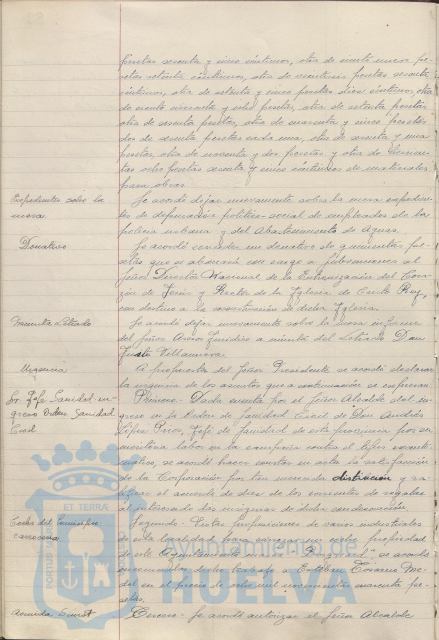 pesetas sesenta y cinco céntimos, otra de ciento nueve pe-
setas setenta céntimos, otra de pesetas sesenta
céntimos, otra de setenta y cinco pesetas diez céntimos, otra
de ciento cincuenta y ocho pesetas, otra de setenta pesetas
otra de sesenta pesetas, otra de cuarenta y cinco pesetas
dos de sesenta pesetas cada una, otra de sesenta y una
pesetas, otra de noventa y dos pesetas y otra de
tas ocho pesetas sesenta y cinco céntimos de materiales
para obras.
Expedientes sobre la
mesa.
Se acordó dejar nuevamente sobre la mesa expedien-
tes de depuración político-social de empleados de la
policía urbana y del Abastecimiento de Aguas.
Donativo
Se acordó conceder un donativo de quinientas pe-
setas que se abonaría con cargo a Subvenciones al
Señor Director Nacional de la Entronización del Cora-
zón de Jesús y Rector de la Iglesia de Cristo Rey,
con destino a la construcción de dicha Iglesia.
Minuta Letrado
Se acordó dejar nuevamente sobre la mesa informe
del Señor Asesor Jurídico a minuta del Letrado Don
Justo Villanueva.
Urgencia
A propuesta del Señor Presidente se acordó declarar
la urgencia de los asuntos que a continuación se expresan
Sr. Jefe Sanidad in-
greso Orden Sanidad
Civil
Primero.- Dada cuenta por el Señor Alcalde del in-
greso en la Orden de Sanidad Civil de Don Andrés
Jefe de Sanidad de esta provincia por su
meritoria labor en la campaña contra el tifus exante-
mático, se acordó hacer constar en acta la satisfacción
de la Corporación por tan merecida distinción y ra-
tificar el acuerdo de diez de los corrientes de regalar
al interesado las insignias de dicha condecoración.
Coche del
Segundo. Vistas proposiciones de varios industriales
de esta localidad para carrozar un coche propiedad
de este Ayuntamiento se acordó
dicho trabajo a
del en el precio de ocho mil novecientas cuarenta pe-
setas.
Tercero. Se acordó autorizar al Señor Alcalde
ET TERRA
PORTUS
Ayuntamiento de
HUELVA